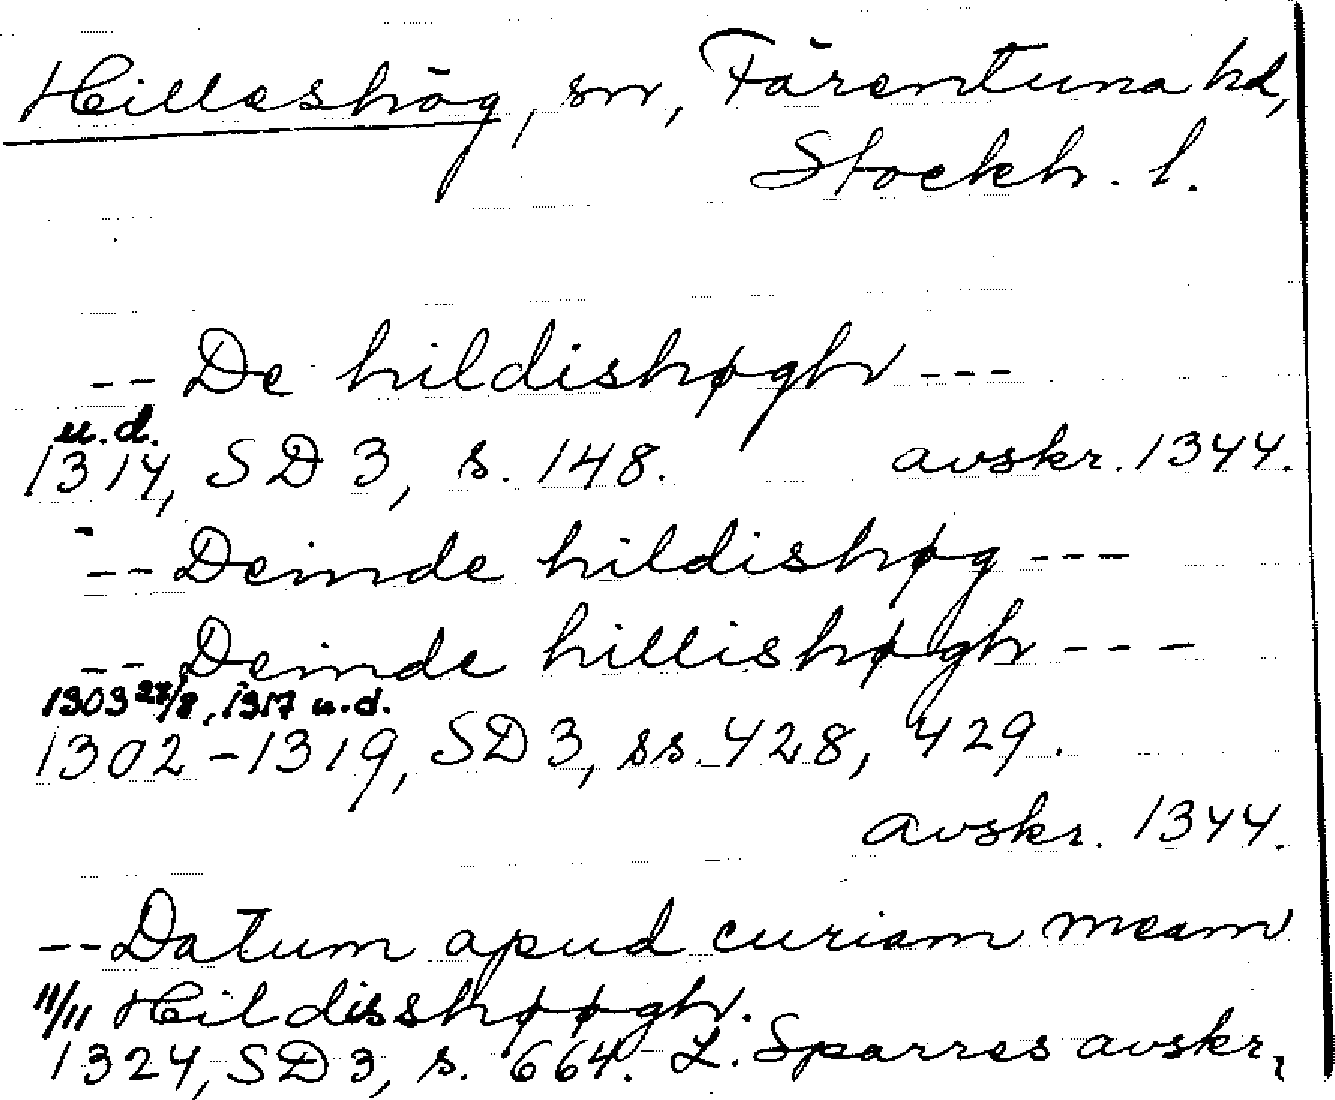 Hilleshög, sn, Färentuna hd,
Stockh. l.
-- De hildishøgh ---
u.d.
1314, SD 3, s. 148. avskr. 1344.
-- Deinde hildishøg ---
-- Deinde hillishøgh ---
1303 28/8, 1317 u.d.
1302-1319, SD 3, ss. 428, 429.
avskr. 1344.
-- Datum apud curiam meam
11/11 Hildisshøøgh.
1324, SD 3, s. 664. L. Sparres avskr,